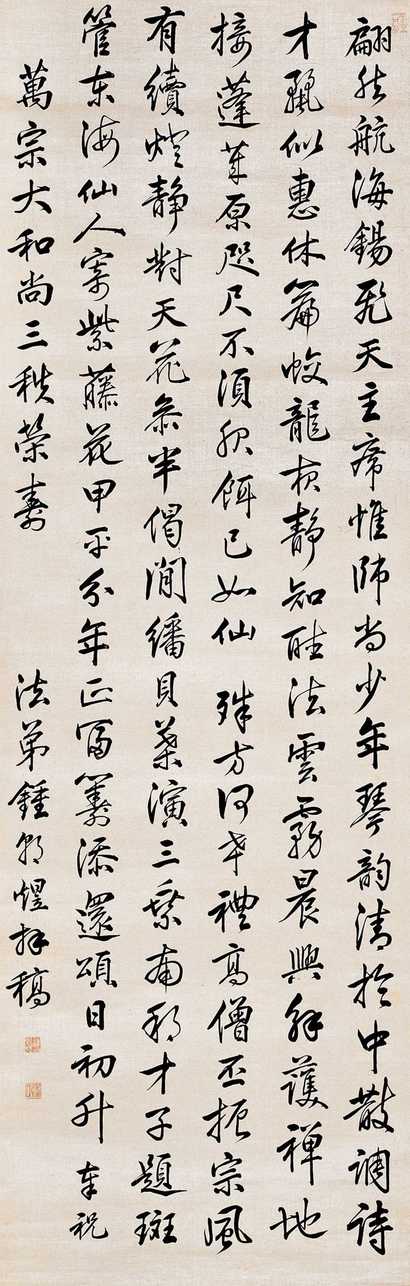 翩然航海錫飛天主席惟師尚少年琴韵清於中散調詩
才似惠休篇蛟龍夜静知聽法雲霧晨興解護禅地
接蓬萊原咫尺不須服餌已如仙 殊方何幸禮高僧丕振宗風
有續燈静對天花參半偈閒繙貝葉演三乘南才子題斑
管東海仙人寄紫藤花甲平分年正富籌添還頌日初升 奉祝
萬宗大和尚三秩榮壽
法弟鍾煜拜稿